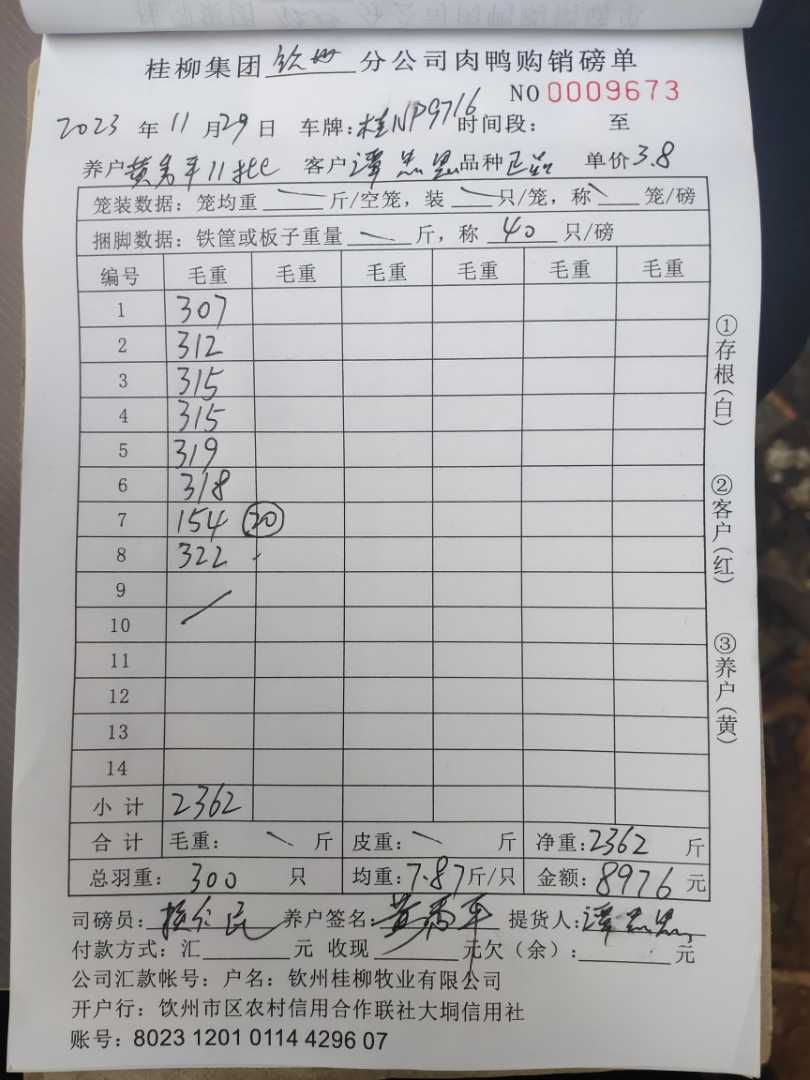 桂柳集团钦州分公司肉鸭购销磅单
NO 0009673
2023年11月29日 车牌:桂NP9716 时间段: 至
养户黄秀平11批 客户谭忠 品种正品 单价3.8
笼装数据:笼均重 斤/空笼,装 只/笼,称 笼/磅
捆脚数据:铁筐或板子重量 斤,称 40 只/磅
编号 毛重 毛重 毛重 毛重 毛重 毛重
1 307
2 312
3 315
4 315
5 319
6 318
7 154 20
8 322
9
10
11
12
13
14
小计 2362
合计 毛重: 斤 皮重: 斤 净重:2362 斤
总羽重: 300 只 均重:7.87斤/只 金额:8976元
司磅员: 民 养户签名:黄秀平 提货人:谭忠
付款方式:汇 元 收现 元欠(余): 元
公司汇款帐号:户名:钦州桂柳牧业有限公司
开户行:饮州市区农村信用合作联社大垌信用社
账号:8023 1201 0114 4296 07
①存根(白)
②客户(红)
③养户(黄)